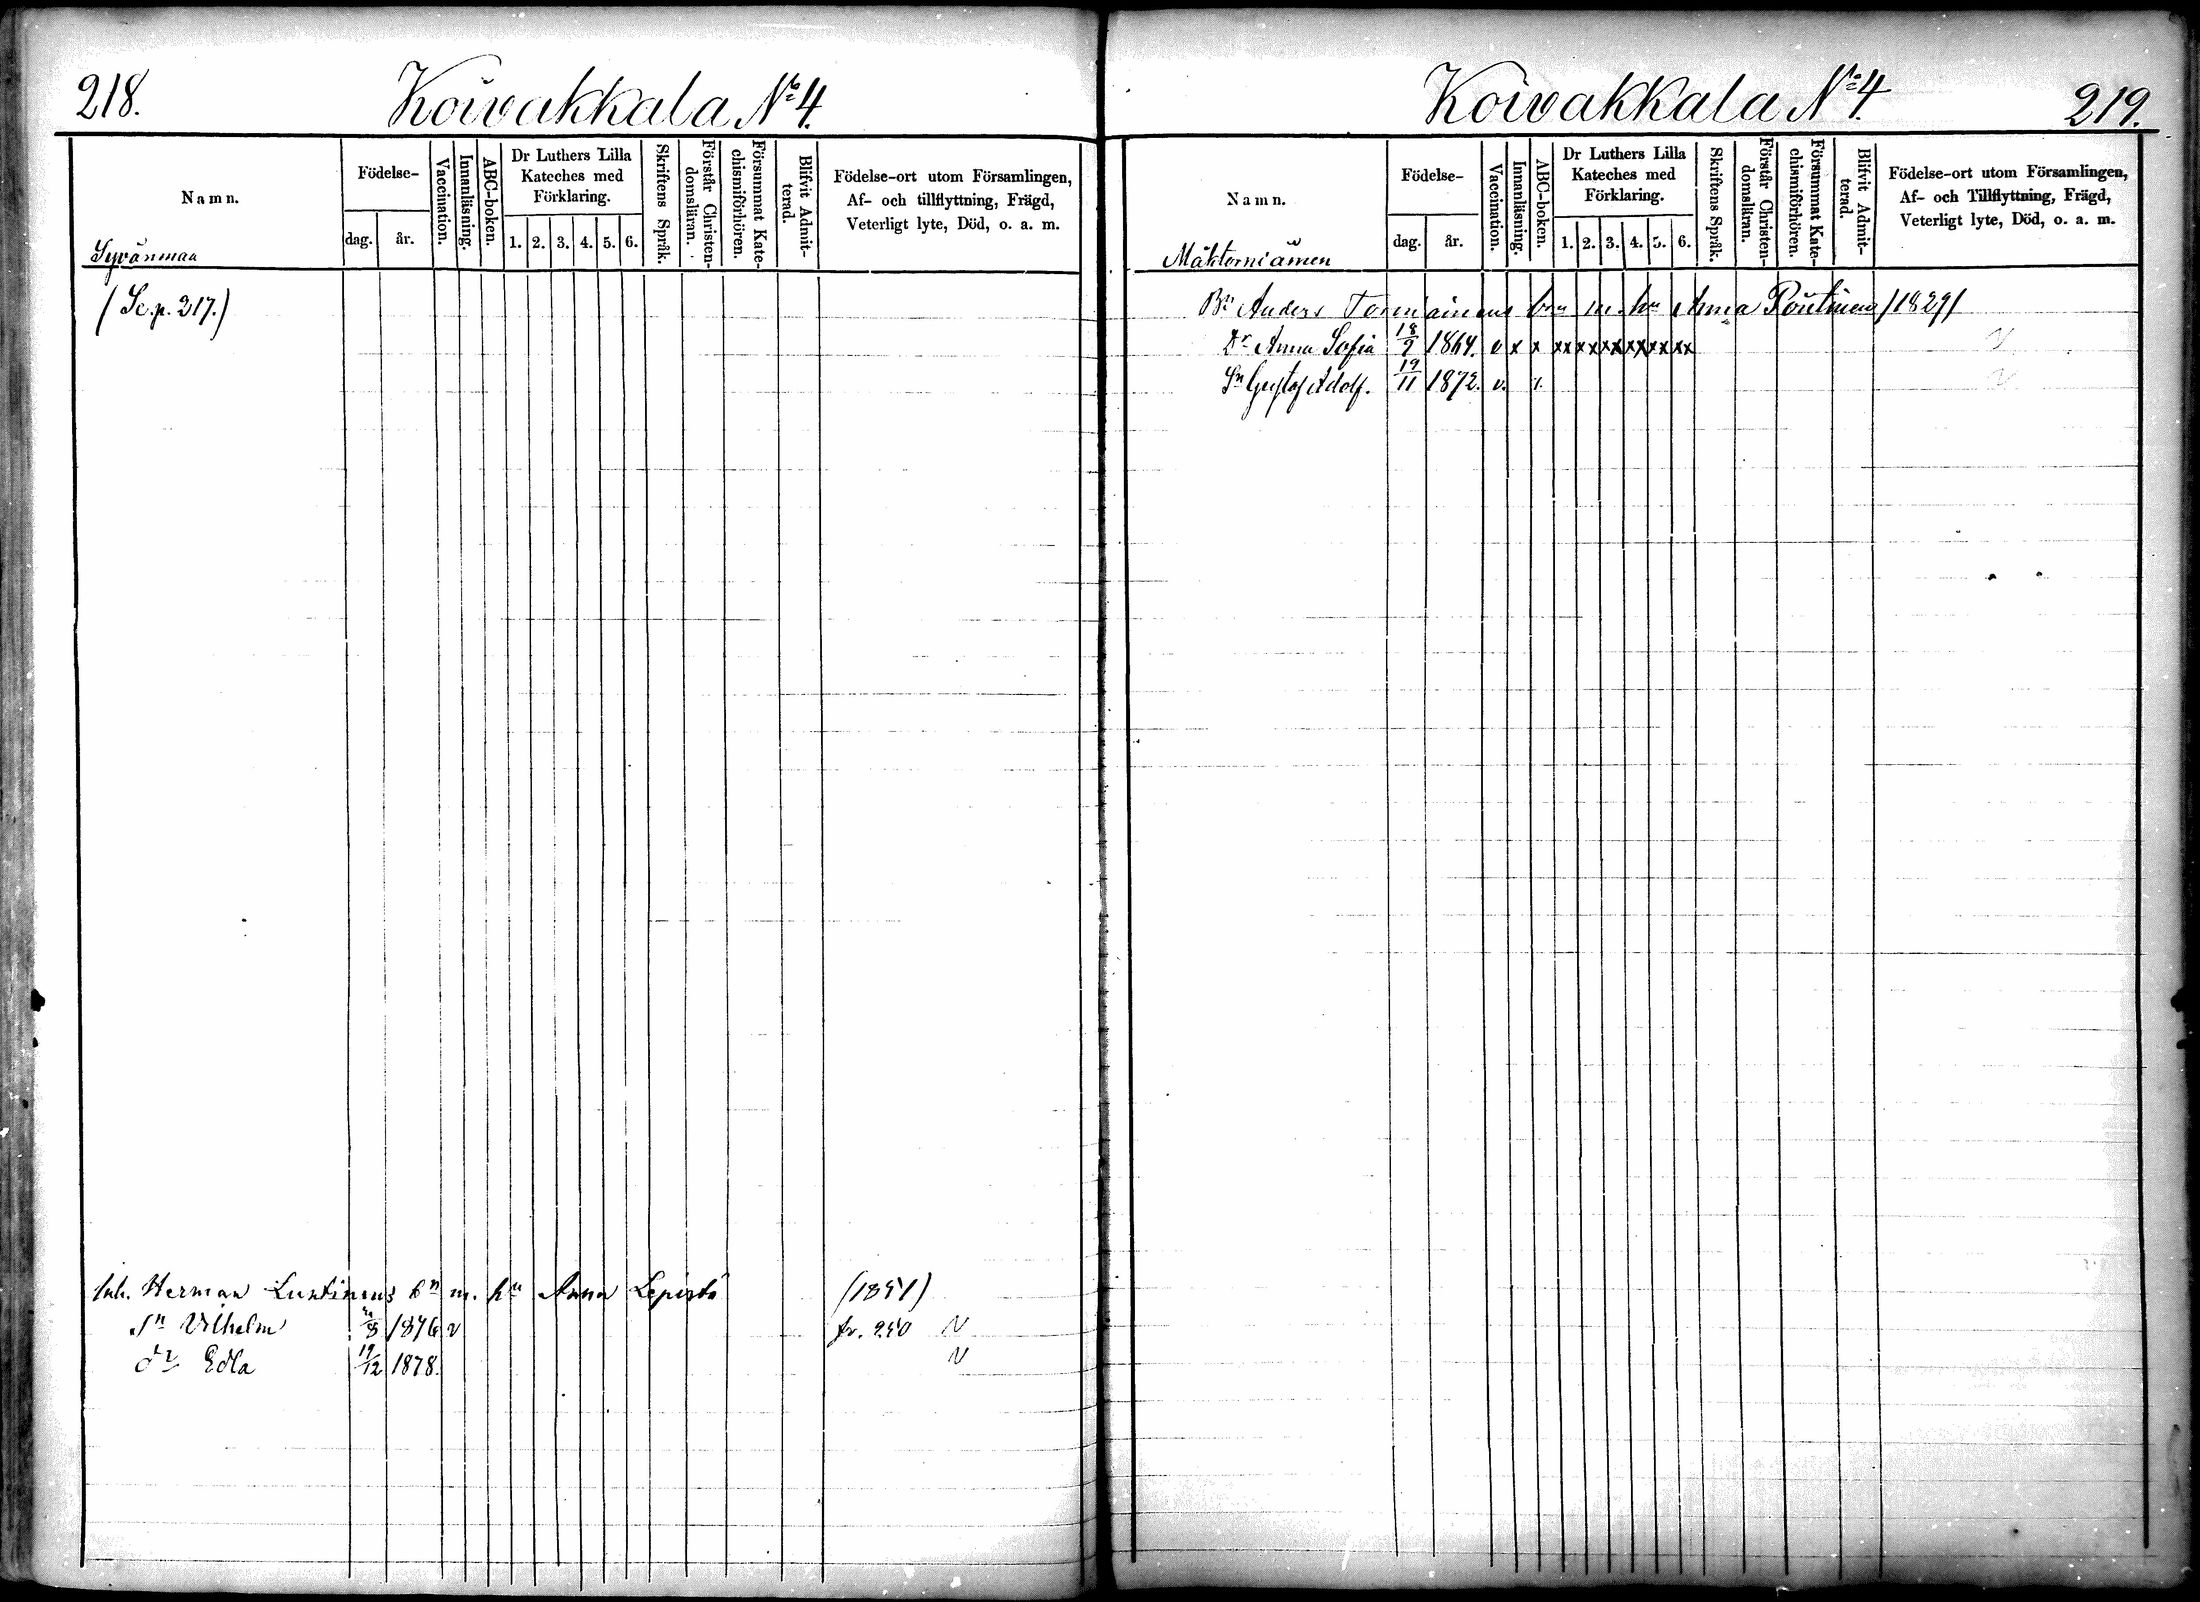 218.
Koivakkala No 4.
Namn.
Födelse-
dag.
år.
Vaccination.
Innanläsning.
ABC-boken.
Dr Luthers Lilla
Kateches med
Förklaring.
1. 2. 3. 4. 5. 6.
Skriftens Språk.
Förstår Christen-
domsläran.
Försummat Kate-
chismiförhören.
Blifvit Admit-
terad.
Födelse-ort utom Församlingen,
Af- och tillflyttning, Frägd,
Veterligt lyte, Död, o. a. m.
Syvänmaa
(Se. p. 217.)
Inh. Herman Luntinens bn m. hu Anna Lepistö (1851)
Sn Vilhelm 8 1876 v fr. 250 N
dr Edla 19/12 1878. N
Koivakkala No 4.
219.
Namn.
Födelse-
dag.
år.
Vaccination.
Innanläsning.
ABC-boken.
Dr Luthers Lilla
Kateches med
Förklaring.
1. 2. 3. 4. 5. 6.
Skriftens Språk.
Förstår Christen-
domsläran.
Försummat Kate-
chismiförhören.
Blifvit Admit-
terad.
Födelse-ort utom Församlingen,
Af- och Tillflyttning, Frägd,
Veterligt lyte, Död, o. a. m.
Anders Torniainens bn m. hu Anna /1829/
Dr Anna Sofia 18/9 1864. v x x xx xx xx xx xx xx
Sn Gustaf Adolf. 19/11 1872. v. x